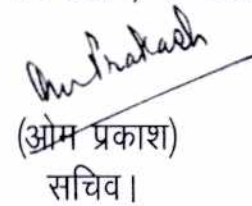 Om Prakash
(ओम प्रकाश)
सचिव।